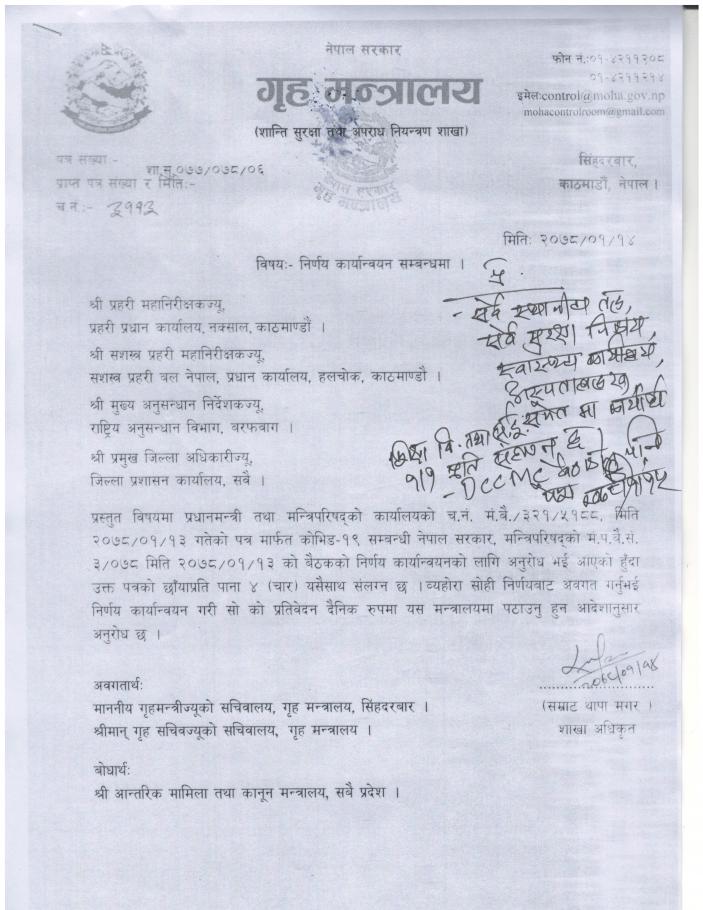 नेपाल सरकार
गृह मन्त्रालय
(शान्ति सुरक्षा तथा अपराध नियन्त्रण शाखा)
फोन नं.:०१-४२११२०८
०१-४२११२१४
इमेल:control@moha.gov.np
mohacontrolroom@gmail.com
सिंहदरबार,
काठमाडौं, नेपाल ।
पत्र संख्या :- शा.सु.०७७/०७८/०६
प्राप्त पत्र संख्या र मिति:-
च.नं.:- ३११३
नेपाल सरकार
गृह मन्त्रालय
मितिः २०७८/०१/१४
विषयः- निर्णय कार्यान्वयन सम्बन्धमा ।
श्री प्रहरी महानिरीक्षकज्यू,
प्रहरी प्रधान कार्यालय, नक्साल, काठमाण्डौं ।
श्री सशस्त्र प्रहरी महानिरीक्षकज्यू,
सशस्त्र प्रहरी बल नेपाल, प्रधान कार्यालय, हलचोक, काठमाण्डौ ।
श्री मुख्य अनुसन्धान निर्देशकज्यू,
राष्ट्रिय अनुसन्धान विभाग, बरफवाग ।
श्री प्रमुख जिल्ला अधिकारीज्यू,
जिल्ला प्रशासन कार्यालय, सबै ।
- सबै स्थानीय तह,
सबै सुरक्षा निकाय,
स्वास्थ्य कार्यालय,
- DCCMC
प्रस्तुत विषयमा प्रधानमन्त्री तथा मन्त्रिपरिषद्को कार्यालयको च.नं. मं.बै./३२१/५१८८, मिति
२०७८/०१/१३ गतेको पत्र मार्फत कोभिड-१९ सम्बन्धी नेपाल सरकार, मन्त्रिपरिषद्को म.प.बै.सं.
३/०७८ मिति २०७८/०१/१३ को बैठकको निर्णय कार्यान्वयनको लागि अनुरोध भई आएको हुँदा
उक्त पत्रको छाँयाप्रति पाना ४ (चार) यसैसाथ संलग्न छ । व्यहोरा सोही निर्णयबाट अवगत गर्नुभई
निर्णय कार्यान्वयन गरी सो को प्रतिवेदन दैनिक रुपमा यस मन्त्रालयमा पटाउनु हुन आदेशानुसार
अनुरोध छ ।
२०७८/०१/१४
(सम्राट थापा मगर )
शाखा अधिकृत
अवगतार्थः
माननीय गृहमन्त्रीज्यूको सचिवालय, गृह मन्त्रालय, सिंहदरबार ।
श्रीमान् गृह सचिवज्यूको सचिवालय, गृह मन्त्रालय ।
बोधार्थः
श्री आन्तरिक मामिला तथा कानून मन्त्रालय, सबै प्रदेश ।